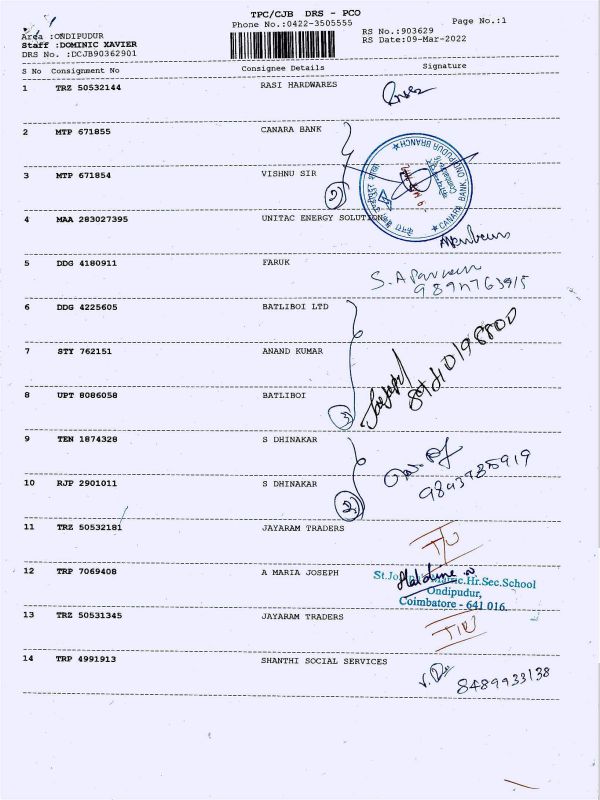 TPC/CJB DRS - PCO
Phone No.:0422-3505555
Page No.:1
Area :ONDIPUDUR
Staff :DOMINIC XAVIER
DRS No. :DCJB90362901
RS No.:903629
RS Date:09-Mar-2022
S No Consignment No Consignee Details Signature
1 TRZ 50532144 RASI HARDWARES
2 MTP 671855 CANARA BANK
3 MTP 671854 VISHNU SIR
2
CANARA BANK, ONDIPUDUR BRANCH
4 MAA 283027395 UNITAC ENERGY SOLUTIONS
5 DDG 4180911 FARUK
6 DDG 4225605 BATLIBOI LTD
7 STY 762151 ANAND KUMAR
8 UPT 8086058 BATLIBOI
3
9 TEN 1874328 S DHINAKAR
10 RJP 2901011 S DHINAKAR
2
11 TRZ 50532181 JAYARAM TRADERS
12 TRP 7069408 A MARIA JOSEPH
Hr.Sec.School
Ondipudur,
Coimbatore - 641 016.
13 TRZ 50531345 JAYARAM TRADERS
14 TRP 4991913 SHANTHI SOCIAL SERVICES
8489933138